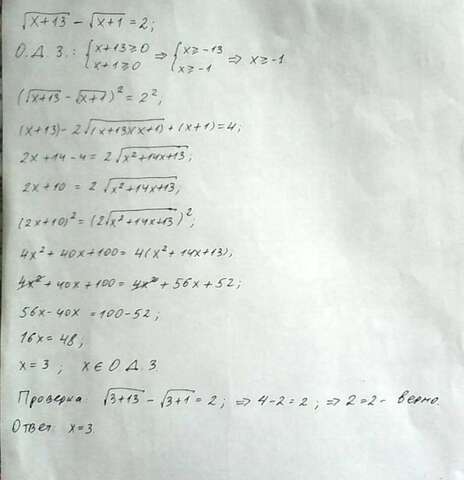 √(x+13) − √(x+1) = 2;
О.Д.З.: {x+13≥0 x+1≥0 ⇒ {x≥-13 x≥-1 ⇒ x≥-1.
(√(x+13) − √(x+1))² = 2²;
(x+13) − 2√((x+13)(x+1)) + (x+1) = 4;
2x+14−4 = 2√(x²+14x+13);
2x+10 = 2√(x²+14x+13);
(2x+10)² = (2√(x²+14x+13))²;
4x²+40x+100 = 4(x²+14x+13);
4x²+40x+100 = 4x²+56x+52;
56x−40x = 100−52;
16x = 48;
x = 3; x ∈ О.Д.З.
Проверка: √(3+13) − √(3+1) = 2; ⇒ 4−2=2; ⇒ 2=2 - верно.
Ответ x=3.